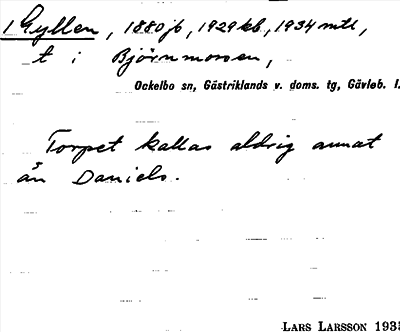 1 Gyllen, 1880 jb, 1929 kb, 1934 mtl,
t i Björnmossen,
Ockelbo sn, Gästriklands v. doms. tg, Gävleb. l.
Torpet kallas aldrig annat
än Daniels.
LARS LARSSON 1935